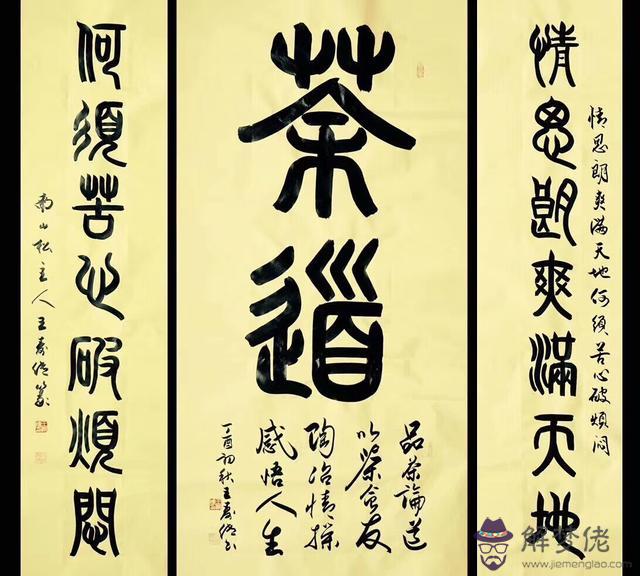 情思朗爽滿天地
情思朗爽滿天地何須苦心破煩悶
茶道
品茶論道
以茶會友
陶冶情操
感悟人生
丁酉初秋王书
何須苦心破煩悶
南山松主人王篆
解梦佬
www.jiemenglao.com